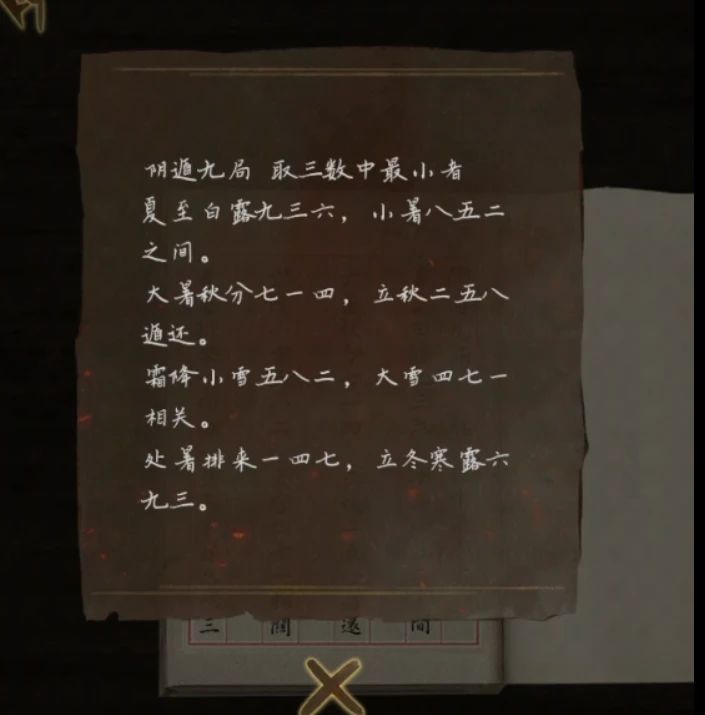 阴遁九局 取三数中最小者
夏至白露九三六，小暑八五二
之间。
大暑秋分七一四，立秋二五八
遁还。
霜降小雪五八二，大雪四七一
相关。
处暑排来一四七，立冬寒露六
九三。
三 關 遂 間